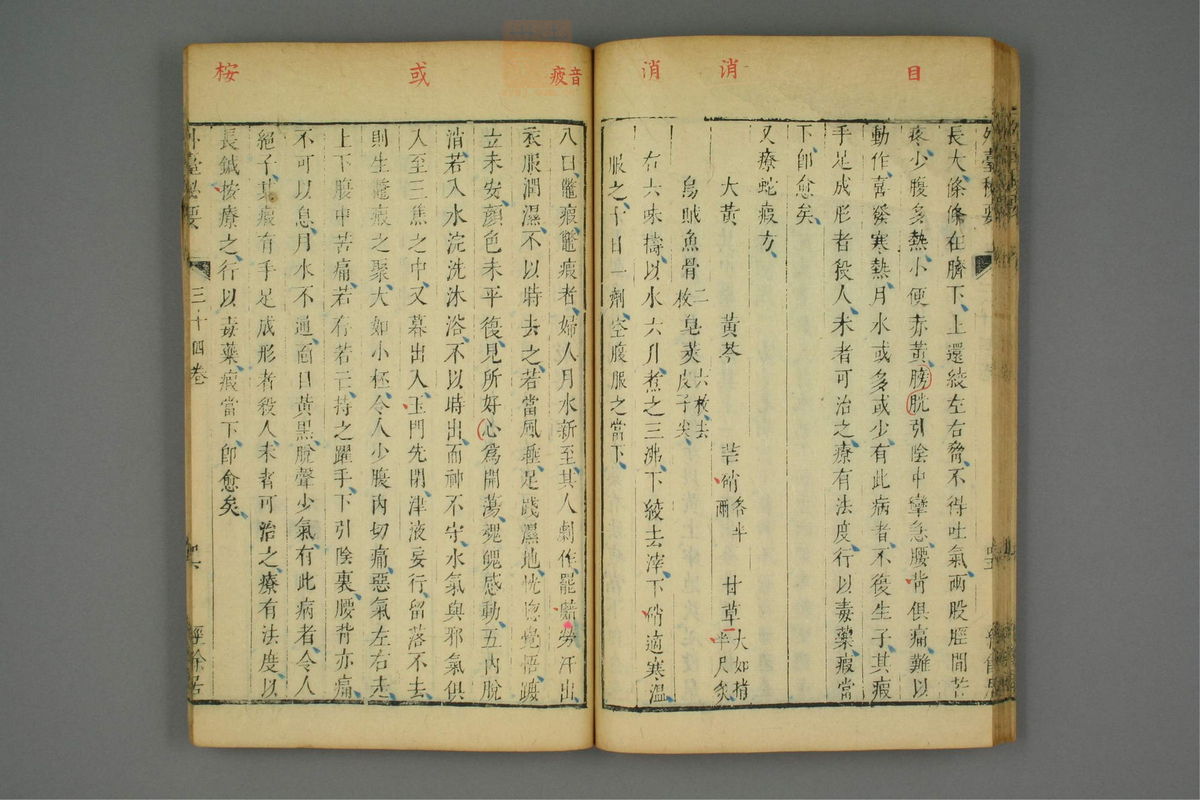 目
消
消
長大條條在臍下上還綾左右脅不得吐氣兩股脛間苦
疼少腹多熱小便赤黃膀胱引陰中攣急腰背俱痛難以
動作喜發寒熱月水或多或少有此病者不復生子其瘕
手足成形者殺人未者可治之療有法度行以毒藥瘕當
下卽愈矣
又療蛇瘕方
大黃 黃芩 芒硝各半兩 甘草大如指半尺炙
烏賊魚骨二枚 皂莢六枚去皮子尖
右六味擣以水六升煮之三沸下綾去滓下硝適寒溫
服之十日一劑空腹服之當下
音疲
或
桉
八曰鼈瘕鼈瘕者婦人月水新至其人劇作罷勞汗出
衣服潤濕不以時去之若當風睡足踐濕地恍惚覺悟躡
立未安顏色未平復見所好心爲開蕩魂魄感動五內脫
消若入水浣洗沐浴不以時出而神不守水氣與邪氣俱
入至三焦之中又暮出入玉門先閉津液妄行留落不去
則生鼈瘕之聚大如小柸令人少腹內切痛惡氣左右走
上下腹中苦痛若存若亡持之躍手下引陰裏腰背亦痛
不可以息月水不通面目黃黑脫聲少氣有此病者令人
絕子其瘕有手足成形者殺人未者可治之療有法度以
長鍼按療之行以毒藥瘕當下卽愈矣
外臺秘要 三十四卷 四六 經餘居